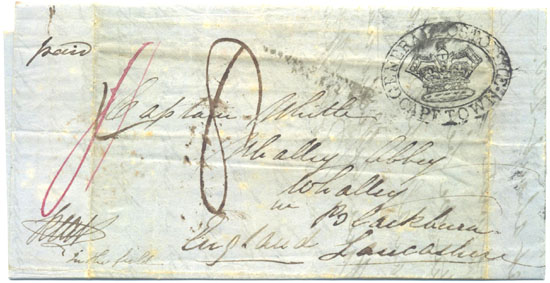 paid
GENERAL POST OFFICE
CAPE TOWN
8
Captain Whittle
Whalley Abbey
Whalley
Blackburn
England Lancashire
In the field